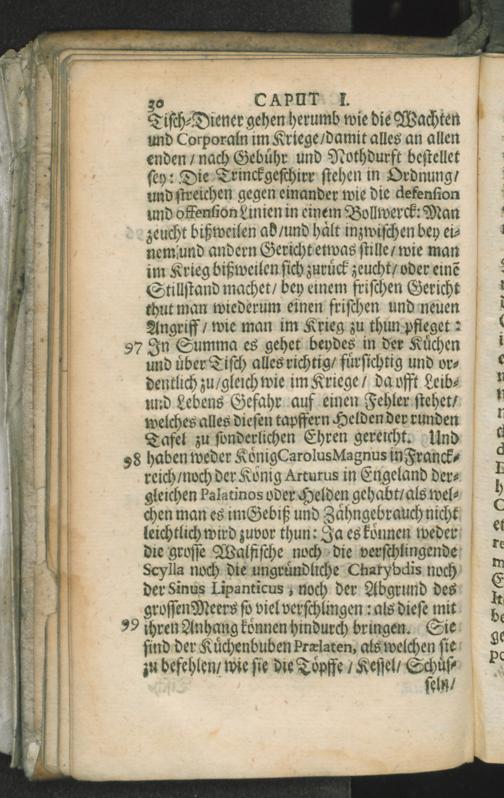 30 CAPUT I.
Tisch-Diener gehen herumb wie die Wachten
und Corporaln im Kriege/damit alles an allen
enden / nach Gebühr und Nothdurft bestellet
sey: Die Trinckgeschirr stehen in Ordnung/
und streichen gegen einander wie die defension
und offension Linien in einem Bollwerck: Man
zeucht bißweilen ab/und hält inzwischen bey ei-
nem und andern Gericht etwas stille / wie man
im Krieg bißweilen sich zurück zeucht/ oder einẽ
Stillstand machet/ bey einem frischen Gericht
thut man wiederum einen frischen und neuen
Angriff / wie man im Krieg zu thun pfleget :
97 In Summa es gehet beydes in der Küchen
und über Tisch alles richtig/ fürsichtig und or-
dentlich zu/gleich wie im Kriege / da offt Leib-
und Lebens Gefahr auf einen Fehler stehet/
welches alles diesen tapffern Helden der runden
Tafel zu sonderlichen Ehren gereicht. Und
98 haben weder König Carolus Magnus in Franck-
reich/noch der König Arturus in Engeland der-
gleichen Palatinos oder Helden gehabt/als wel-
chen man es im Gebiß und Zähngebrauch nicht
leichtlich wird zuvor thun: Ja es können weder
die grosse Walfische noch die verschlingende
Scylla noch die ungründliche Charybdis noch
der Sinus Lipanticus , noch der Abgrund des
grossen Meers so viel verschlingen : als diese mit
99 ihren Anhang können hindurch bringen. Sie
sind der Küchenbuben Prælaten, als welchen sie
zu befehlen/ wie sie die Töpffe / Kessel/ Schüs-
seln/